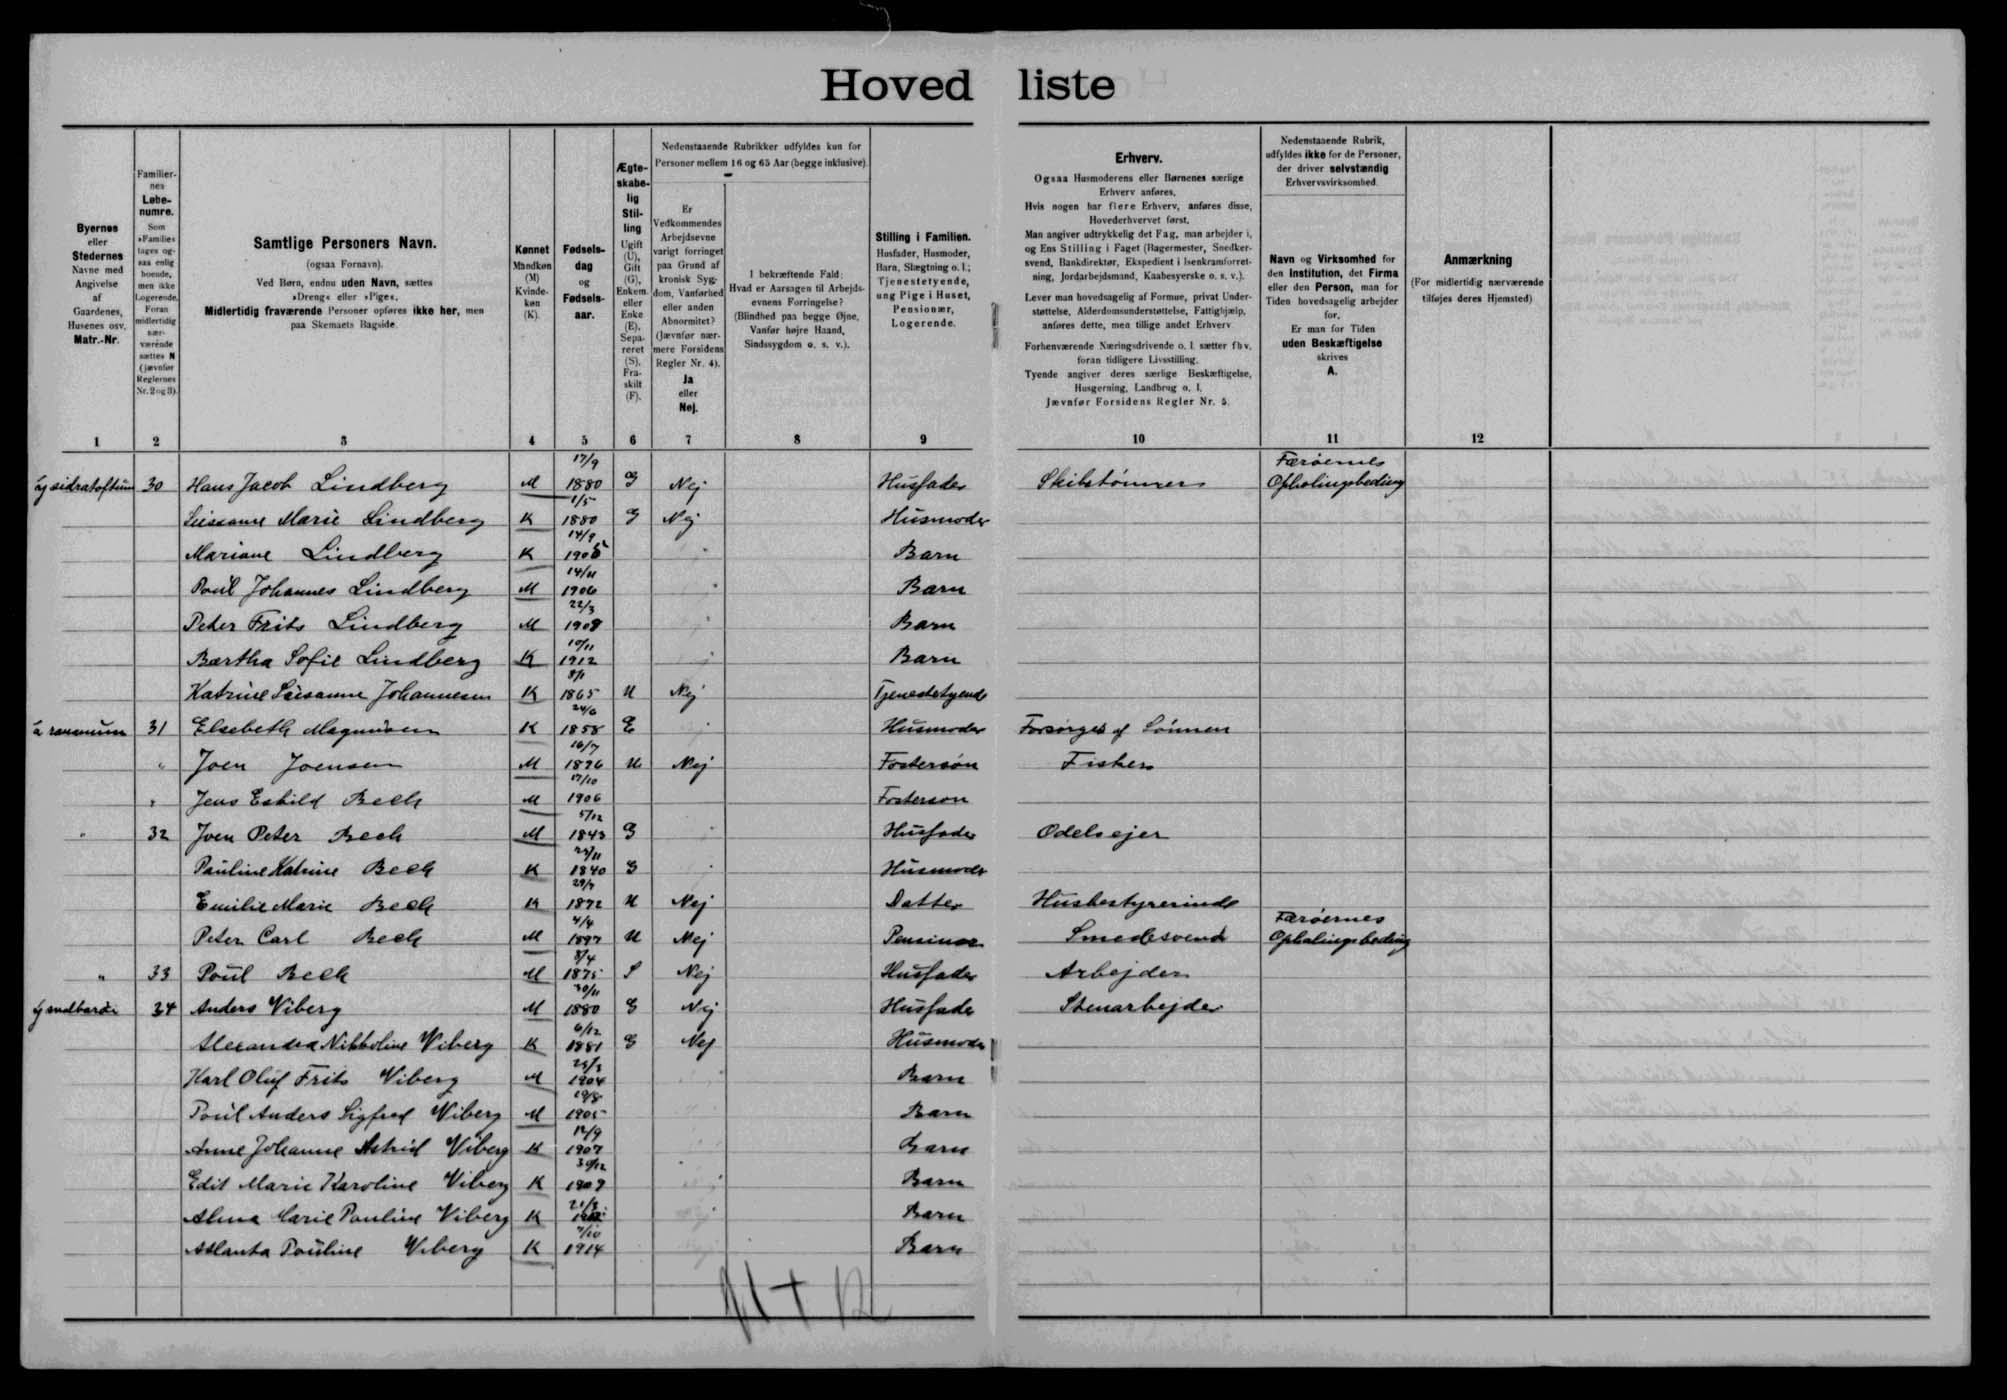 Hoved liste
Byernes
eller
Stedernes
Navne med
Angivelse
af
Gaardenes,
Husenes osv.
Matr.-Nr.
Familier-
nes
Løbe-
numre.
Som
»Familie«
tages og-
saa enlig
boende,
men ikke
Logerende.
Foran
midlertidig
nær-
værende
sættes N
(jævnfør
Reglernes
Nr. 2 og 3).
Samtlige Personers Navn.
(ogsaa Fornavn).
Ved Børn, endnu uden Navn, sættes
»Dreng« eller »Pige«.
Midlertidig fraværende Personer opføres ikke her, men
paa Skemaets Bagside.
Kønnet
Mandkøn
(M)
Kvinde-
køn
(K).
Fødsels-
dag
og
Fødsels-
aar.
Ægte-
skabe-
lig
Stil-
ling
Ugift
(U),
Gift
(G),
Enkem.
eller
Enke
(E),
Sepa-
reret
(S),
Fra-
skilt
(F).
Nedenstaaende Rubrikker udfyldes kun for
Personer mellem 16 og 65 Aar (begge inklusive).
Er
Vedkommendes
Arbejdsevne
varigt forringet
paa Grund af
kronisk Syg-
dom, Vanførhed
eller anden
Abnormitet?
(Jævnfør nær-
mere Forsidens
Regler Nr. 4).
Ja
eller
Nej.
I bekræftende Fald:
Hvad er Aarsagen til Arbejds-
evnens Forringelse?
(Blindhed paa begge Øjne,
Vanfør højre Haand,
Sindssygdom o. s. v.).
Stilling i Familien.
Husfader, Husmoder,
Barn, Slægtning o. l.;
Tjenestetyende,
ung Pige i Huset,
Pensionær,
Logerende.
Erhverv.
Ogsaa Husmoderens eller Børnenes særlige
Erhverv anføres.
Hvis nogen har flere Erhverv, anføres disse,
Hovederhvervet først.
Man angiver udtrykkelig det Fag, man arbejder i,
og Ens Stilling i Faget (Bagermester, Snedker-
svend, Bankdirektør, Ekspedient i Isenkramforret-
ning, Jordarbejdsmand, Kaabesyerske o. s. v.).
Lever man hovedsagelig af Formue, privat Under-
støttelse, Alderdomsunderstøttelse, Fattighjælp,
anføres dette, men tillige andet Erhverv
Forhenværende Næringsdrivende o. l. sætter fhv.
foran tidligere Livsstilling.
Tyende angiver deres særlige Beskæftigelse,
Husgerning, Landbrug o. l.
Jævnfør Forsidens Regler Nr. 5.
Nedenstaaende Rubrik,
udfyldes ikke for de Personer,
der driver selvstændig
Erhvervsvirksomhed.
Navn og Virksomhed for
den Institution, det Firma
eller den Person, man for
Tiden hovedsagelig arbejder
for.
Er man for Tiden
uden Beskæftigelse
skrives
A.
Anmærkning
(For midlertidig nærværende
tilføjes deres Hjemsted)
1 2 3 4 5 6 7 8 9 10 11 12
30 Hans Jacob Lindberg M 17/9 1880 G Nej Husfader Skibstømrer Færøernes Ophalingsbeding
Sussanne Marie Lindberg K 1/5 1880 G Nej Husmoder
Mariane Lindberg K 14/9 1905 Barn
Poul Johannes Lindberg M 14/11 1906 Barn
Peter Frits Lindberg M 22/3 1908 Barn
Bærtha Sofie Lindberg K 10/11 1912 Barn
Katrine Susanne Johannesen K 8/1 1865 U Nej Tjenestetyende
31 Elsebeth Magnusen K 24/6 1858 E Husmoder Forsørges af Sønnen
" Joen Joensen M 16/7 1896 U Nej Fosterson Fisker
" Jens Eskild Bech M 17/10 1906 Fosterson
" 32 Joen Peter Bech M 5/12 1843 G Husfader Odelsejer
Pauline Katrine Bech K 1840 G Husmoder
Emilie Marie Bech K 29/7 1872 U Nej Datter Husbestyrerinde
Peter Carl Bech M 4/4 1897 U Nej Smedesvend Færøernes Ophalingsbeding
" 33 Poul Bech M 8/4 1875 S Nej Husfader Arbejder
34 Anders Viberg M 30/11 1880 G Nej Husfader Stenarbejder
Alexandra Nikkoline Viberg K 6/12 1881 G Nej Husmoder
Karl Oluf Frits Viberg M 1904 Barn
Poul Anders Sigfred Viberg M 19/8 1905 Barn
Anne Johanne Astrid Viberg K 12/9 1907 Barn
Edit Marie Karoline Viberg K 30/12 1909 Barn
Alma Marie Pauline Viberg K 21/3 Barn
Atlanta Pouline Viberg K 7/10 1914 Barn